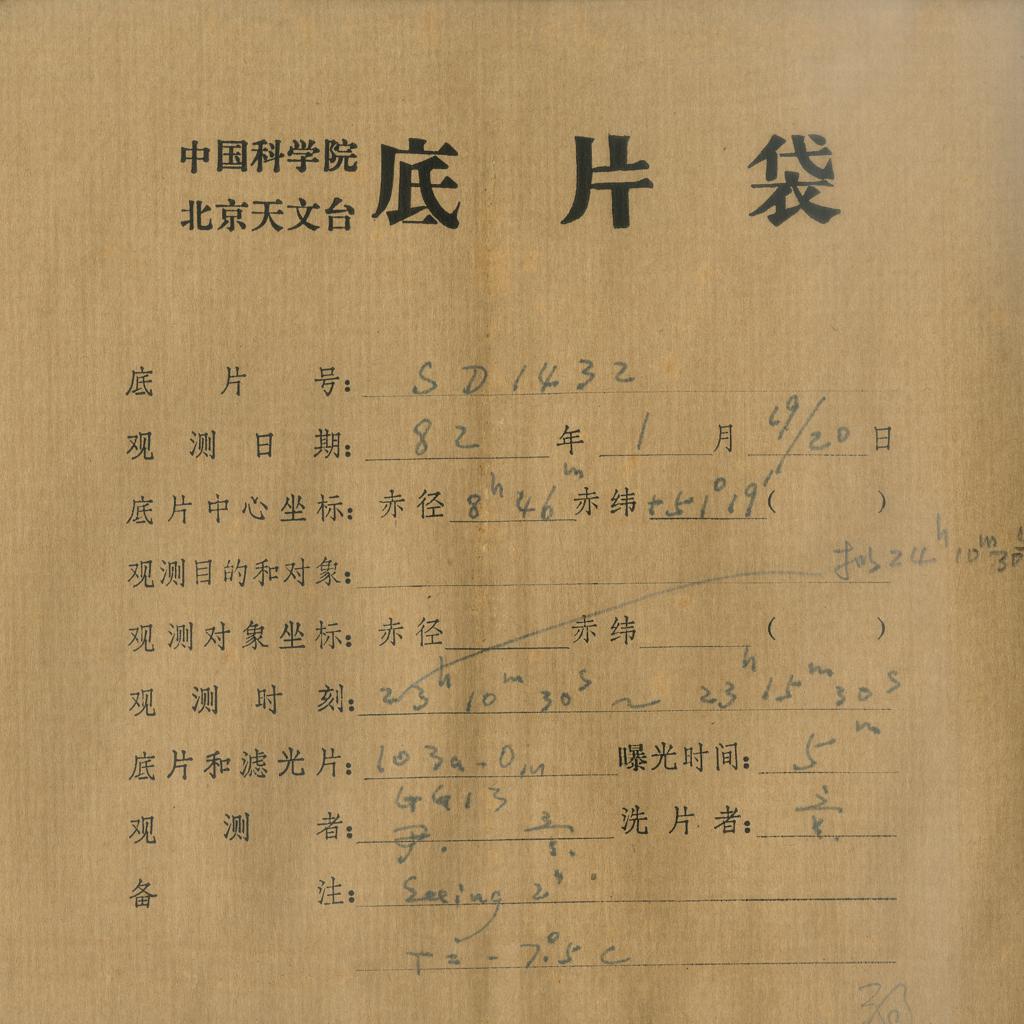 中国科学院
北京天文台
底片袋
底片号: SD1432
观测日期: 82年 1月 19/20日
底片中心坐标: 赤径 8h46m 赤纬 +51°19′( )
观测目的和对象:
24h10m30s
观测对象坐标: 赤径 赤纬 ( )
观测时刻: 23h10m30s ~ 23h15m30s
底片和滤光片: 103a-O 曝光时间: 5m
GG13
观测者: 尹. 洗片者:
备注: Seeing 2″.
T = -7°.5 C